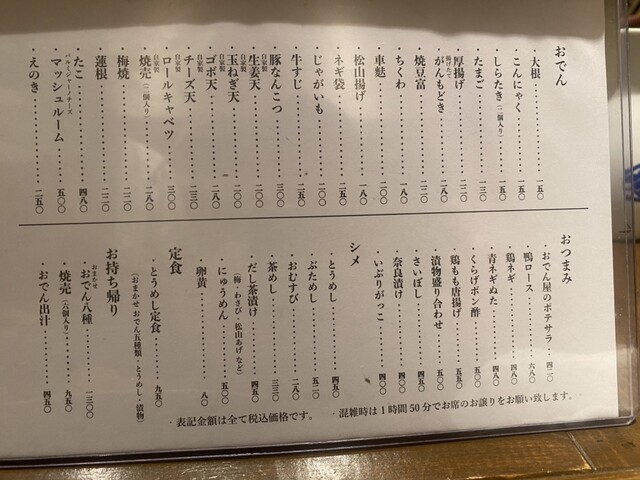 おでん
・大根 一五〇
・こんにゃく 一五〇
・しらたき(二個入り) 一五〇
・たまご 一三〇
・厚揚げ 二二〇
揚げたて
・がんもどき
・焼豆富
・ちくわ 一八〇
・車麩 二〇〇
・松山揚げ 一八〇
・ネギ袋 二五〇
・じゃがいも 二〇〇
・牛すじ 二五〇
・豚なんこつ 三〇〇
自家製
・生姜天 二〇〇
自家製
・玉ねぎ天 二〇〇
自家製
・ゴボ天 二八〇
自家製
・チーズ天 二三〇
自家製
・ロールキャベツ 三〇〇
自家製
・焼売(二個入り) 二八〇
・梅焼 二二〇
・蓮根
・たこ 四八〇
パルミジャーノチーズ
・マッシュルーム 五〇〇
・えのき 二五〇
おつまみ
・おでん屋のポテサラ 四二〇
・鴨ロース 六八〇
・鶏ネギ 四八〇
・青ネギぬた 四八〇
・くらげポン酢 五〇〇
・鶏もも唐揚げ 五五〇
・漬物盛り合わせ 五〇〇
・さいぼし 四五〇
・奈良漬け 四〇〇
・いぶりがっこ 四〇〇
シメ
・とうめし 四五〇
・ぶためし 五二〇
・おむすび 二八〇
・茶めし 三三〇
・だし茶漬け 四五〇
(梅・わさび・松山あげなど)
・にゅうめん 五〇〇
・卵黄 八〇
定食
・とうめし定食 九五〇
(おまかせおでん五種類 とうめし・漬物)
お持ち帰り
おまかせ
・おでん八種 一三〇〇
・焼売(六個入り) 九五〇
・おでん出汁 四五〇
・混雑時は1時間50分でお席のお譲りをお願い致します。
・表記金額は全て税込価格です。